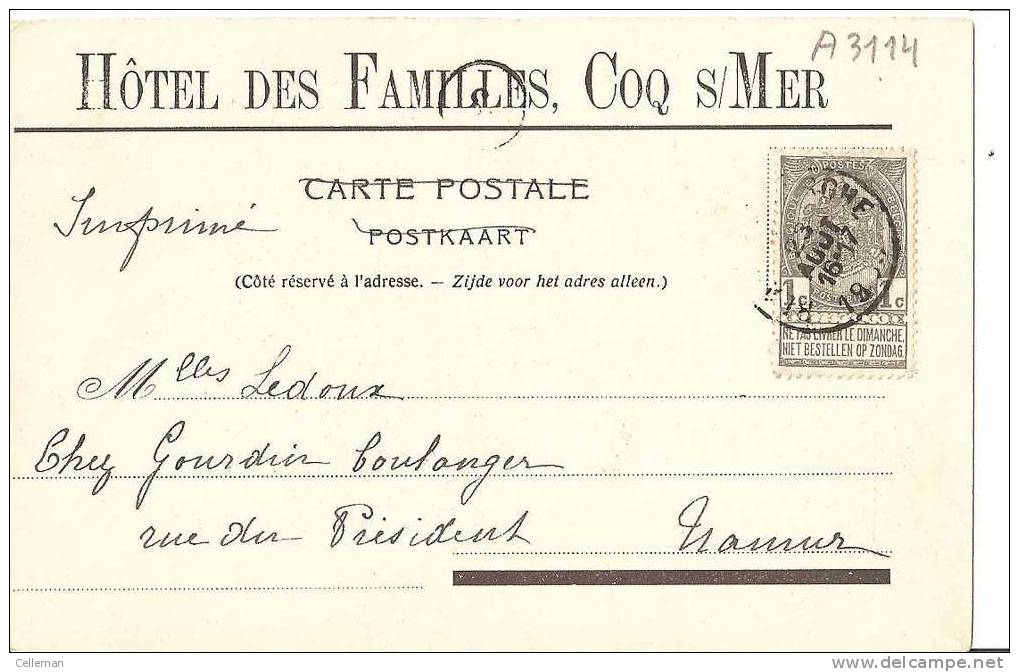 A3114
HÔTEL DES FAMILLES, COQ S/MER
CARTE POSTALE
Imprimé
POSTKAART
(Côté réservé à l'adresse. — Zijde voor het adres alleen.)
POSTES
1c 1c
AOUT
16-17
18
NE PAS LIVRER LE DIMANCHE.
NIET BESTELLEN OP ZONDAG.
Mlles Ledoux
Chez Gourdin boulanger
rue du Président Namur
Celleman
www.delcampe.net